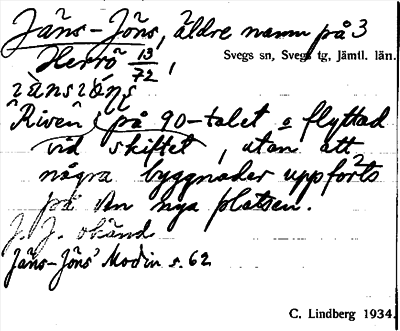 Jäns-Jöns, äldre namn på 3
Herrö 13/72,
Svegs sn, Svegs tg, Jämtl. län.
Riven på 90-talet o flyttad
vid skiftet, utan att
några byggnader uppförts
på den nya platsen.
J. J. okänd
Jäns-Jöns' Modin s. 62
C. Lindberg 1934.